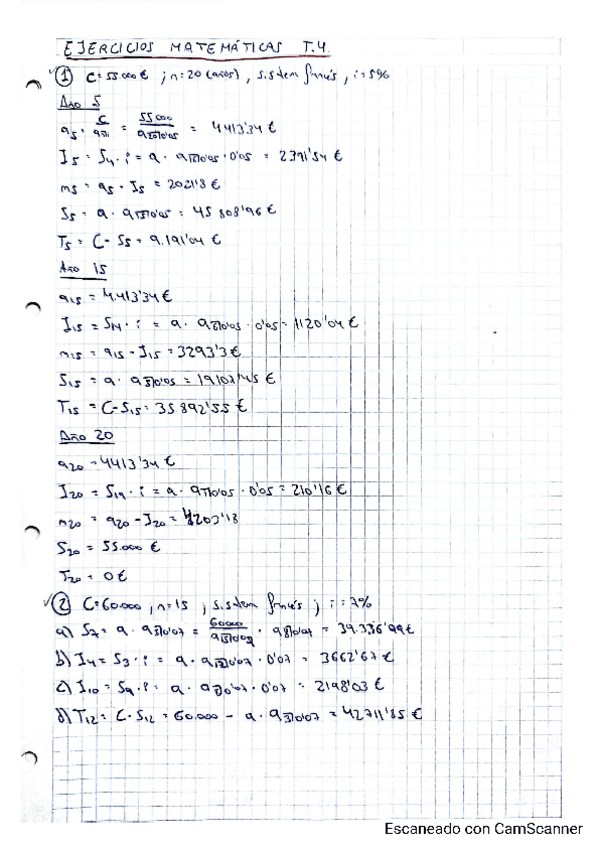 EJERCICIOS MATEMÁTICAS T.4.
① C=55.000€ ; n=20 (años), sistem francés, i=5%
Año 5
a5 = C / a = 55000 / a 0'05 = 4413'34 €
I5 = S4 · i = a · a 0'05 · 0'05 = 2391'54 €
m5 = a5 - I5 = 2021'8 €
S5 = a · a 0'05 = 45 808'96 €
T5 = C - S5 = 9.191'04 €
Año 15
a15 = 4.413'34 €
I15 = S14 · i = a · a 0'05 · 0'05 = 1120'04 €
m15 = a15 - I15 = 3293'3 €
S15 = a · a 0'05 = 19107'45 €
T15 = C - S15 = 35 892'55 €
Año 20
a20 = 4413'34 €
I20 = S19 · i = a · a 0'05 · 0'05 = 210'16 €
m20 = a20 - I20 = 4203'18
S20 = 55.000 €
T20 = 0 €
② C=60.000, n=15 ; sistem francés ; i=7%
a) S7 = a · a 0'07 = 60000 / a · a 0'07 = 39.336'99 €
b) I4 = S3 · i = a · a 0'07 · 0'07 = 3662'67 €
c) I10 = S9 · i = a · a 0'07 · 0'07 = 2198'03 €
d) T12 = C - S12 = 60.000 - a · a 0'07 = 42711'85 €
Escaneado con CamScanner